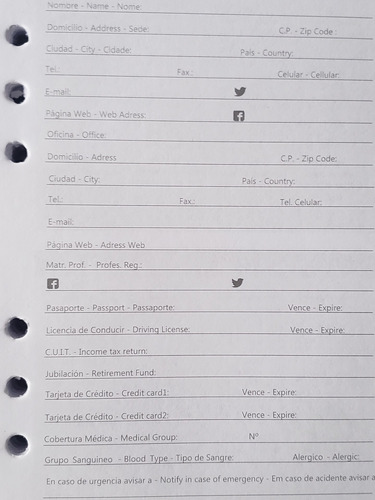 Nombre - Name - Nome:
Domicilio - Address - Sede: C.P. - Zip Code :
Ciudad - City - Cidade: País - Country:
Tel.: Fax.: Celular - Cellular:
E-mail:
Página Web - Web Adress:
Oficina - Office:
Domicilio - Adress C.P. - Zip Code:
Ciudad - City: País - Country:
Tel.: Fax.: Tel. Celular:
E-mail:
Página Web - Adress Web
Matr. Prof. - Profes. Reg.:
Pasaporte - Passport - Passaporte: Vence - Expire:
Licencia de Conducir - Driving License: Vence - Expire:
C.U.I.T. - Income tax return:
Jubilación - Retirement Fund:
Tarjeta de Crédito - Credit card1: Vence - Expire:
Tarjeta de Crédito - Credit card2: Vence - Expire:
Cobertura Médica - Medical Group: Nº
Grupo Sanguineo - Blood Type - Tipo de Sangre: Alergico - Alergic:
En caso de urgencia avisar a - Notify in case of emergency - Em caso de acidente avisar a